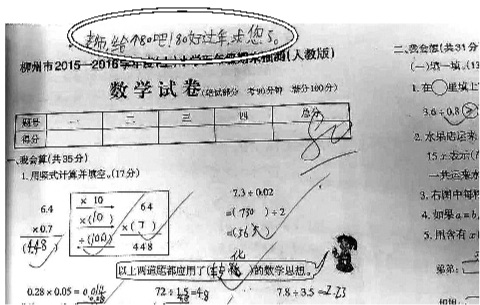 老师,给个80吧!80好过年,求您了。
柳州市2015—2016学年度 (人教版)
数学试卷(考试部分 考90分钟 满分100分)
题号 一 二 三 四 总分
得分 80
一、我会算(共35分)
1.用竖式计算并填空。(17分)
6.4
×0.7
(4.48)
× 10
×(10)
÷(100)
64
×(7)
448
7.3÷0.02
=(730)÷2
=(365)
以上两道题都应用了(转化)的数学思想。
0.28×0.05=0.014
72÷1.5=48
7.8÷3.5≈2.23
二、我会想(共31分)
(一)填一填。(13
1.在○里填上
3.6÷0.8
2.水果店运来
15x表示(
一共运来水
3.右图中每
4.如果a=b,
5.用含有x
第第: